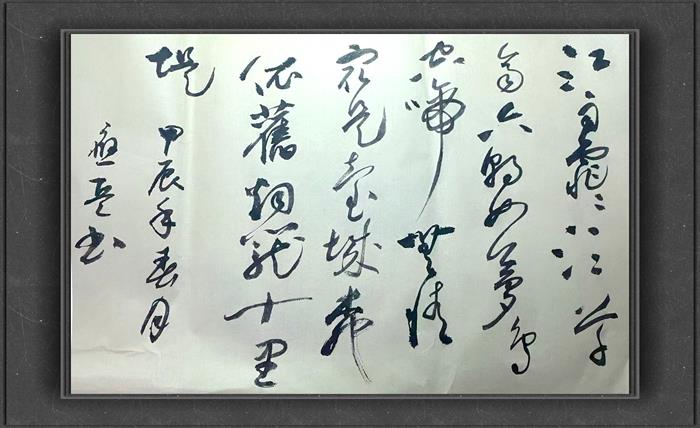 江雨霏〻江草
齊六朝如夢鳥
空啼無情
最是臺城柳
依舊烟籠十里
堤 甲辰年春月
书